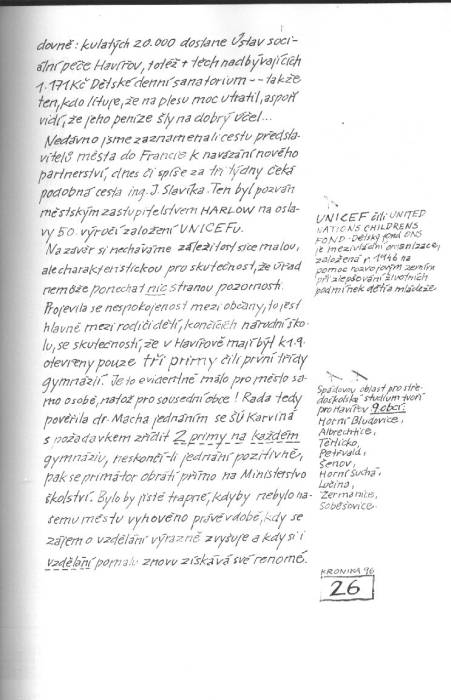 dovně: kulatých 20.000 dostane Ústav soci-
ální péče Havířov, totéž + těch nadbývajících
1.171 Kč Dětské denní sanatorium -- takže
ten, kdo lituje, že na plesu moc utratil, aspoň
vidí, že jeho peníze šly na dobrý účel...
Nedávno jsme zaznamenali cestu předsta-
vitelů města do Francie k navázání nového
partnerství, dnes či spíše za tři týdny čeká
podobná cesta ing. J. Slavíka. Ten byl pozván
městským zastupitelstvem HARLOW na osla-
vy 50. výročí založení UNICEFu.
Na závěr si nechávám záležitost sice malou,
ale charakteristickou pro skutečnost, že úřad
nemůže ponechat nic stranou pozornosti.
Projevila se nespokojenost mezi občany, to jest
hlavně mezi rodiči dětí, končících národní ško-
lu, se skutečností, že v Havířově mají být k 1.9.
otevřeny pouze tři primy čili první třídy
gymnázií. Je to evidentně málo pro město sa-
mo osobě, natož pro sousední obce! Rada tedy
pověřila dr. Macha jednáním se ŠÚ Karviná
s požadavkem zřídit 2 primy na každém
gymnáziu, neskončí-li jednání pozitivně,
pak se primátor obrátí přímo na Ministerstvo
školství. Bylo by jistě trapné, kdyby nebylo na-
šemu městu vyhověno právě v době, kdy se
zájem o vzdělání výrazně zvyšuje a kdy si i
vzdělání pomalu znovu získává své renomé.
UNICEF čili UNITED
NATIONS CHILDRENS
FOND - Dětský fond OSN
je mezivládní organizace,
založená r. 1946 na
pomoc rozvojovým zemím
při zlepšování životních
podmínek dětí a mládeže.
Spádovou oblast pro stře-
doškolské studium tvoří
pro Havířov 9 obcí:
Horní Bludovice,
Albrechtice,
Těrlicko,
Petřvald,
Šenov,
Horní Suchá,
Lučina,
Žermanice,
Soběšovice.
KRONIKA 96
26